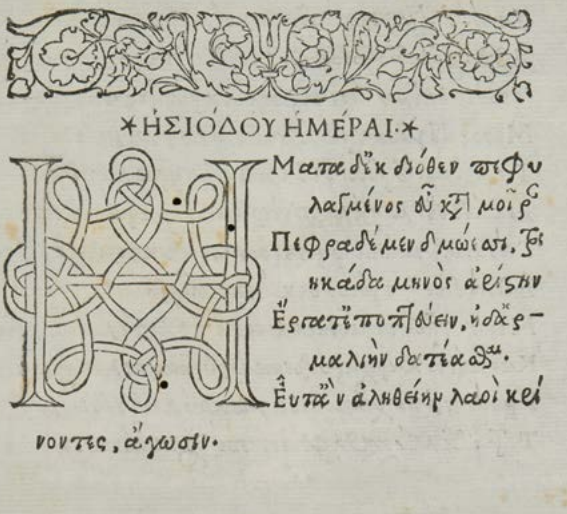 *ἩΣΙΌΔΟΥ ἩΜΈΡΑΙ·*
ΗΜαταδ᾽ἐκ διόθεν πεφυ
λαγμένος εὖ κατὰ μοῖραν
Πεφραδέμεν δμώεσσι, τριη
κάδα μηνὸς ἀρίστην
Ἔργατ᾽ἐποπτεύειν, ἠδ᾽ἁρ-
μαλιὴν δατέασθαι.
Εὖτ᾽ἂν ἀληθείην λαοὶ κρί
νοντες, ἄγωσιν.